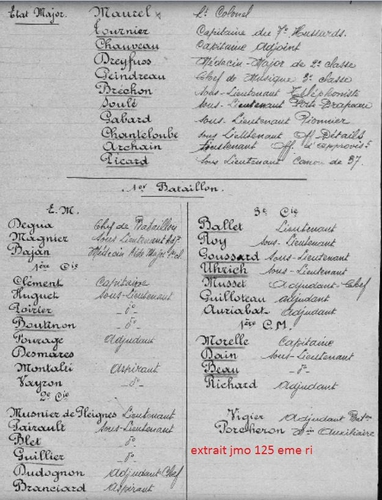 Etat Major. Maurel Lt Colonel
Tournier Capitaine du 7e Hussards.
Chauveau Capitaine Adjoint
Dreyfuss Médecin-Major de 2e classe
Geindreau Chef de Musique 2e classe
Bréchon Sous-Lieutenant Téléphoniste
Soulé Sous-Lieutenant Porte-Drapeau
Gabard Sous-Lieutenant Pionnier
Chanteloube Sous Lieutenant Off Détails
Archain Lieutenant Off d'approvis
Picard Sous Lieutenant Canon de 37.
1er Bataillon.
E. M.
Degua Chef de Bataillon
Magnier Sous Lieutenant
Bajan Médecin Aide Major
1ère Cie
Clément Capitaine
Huguet Sous-Lieutenant
Poirier -d°-
Boutinon -d°-
Pourage Adjudant
Desmares
Montalti Aspirant
Vayron -d°-
2e Cie
Musnier de Pleignes Lieutenant
Pairault Sous-Lieutenant
Blet -d°-
Guillier -d°-
Dudognon Adjudant Chef
Branciard Aspirant
3e Cie
Ballet Lieutenant
Roy Sous-Lieutenant
Goussard Sous-Lieutenant
Uhrich Sous-Lieutenant
Musset Adjudant-Chef
Guilloteau Adjudant
Auriabat Adjudant
1ère C.M.
Morelle Capitaine
Dain Sous-Lieutenant
Beau -d°-
Richard Adjudant
Vigier Adjudant
Porcheron Auxiliaire
extrait jmo 125 eme ri